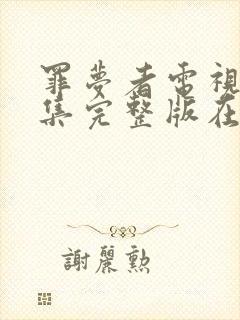 罪夢者電視
集完整版在
謝麗勲